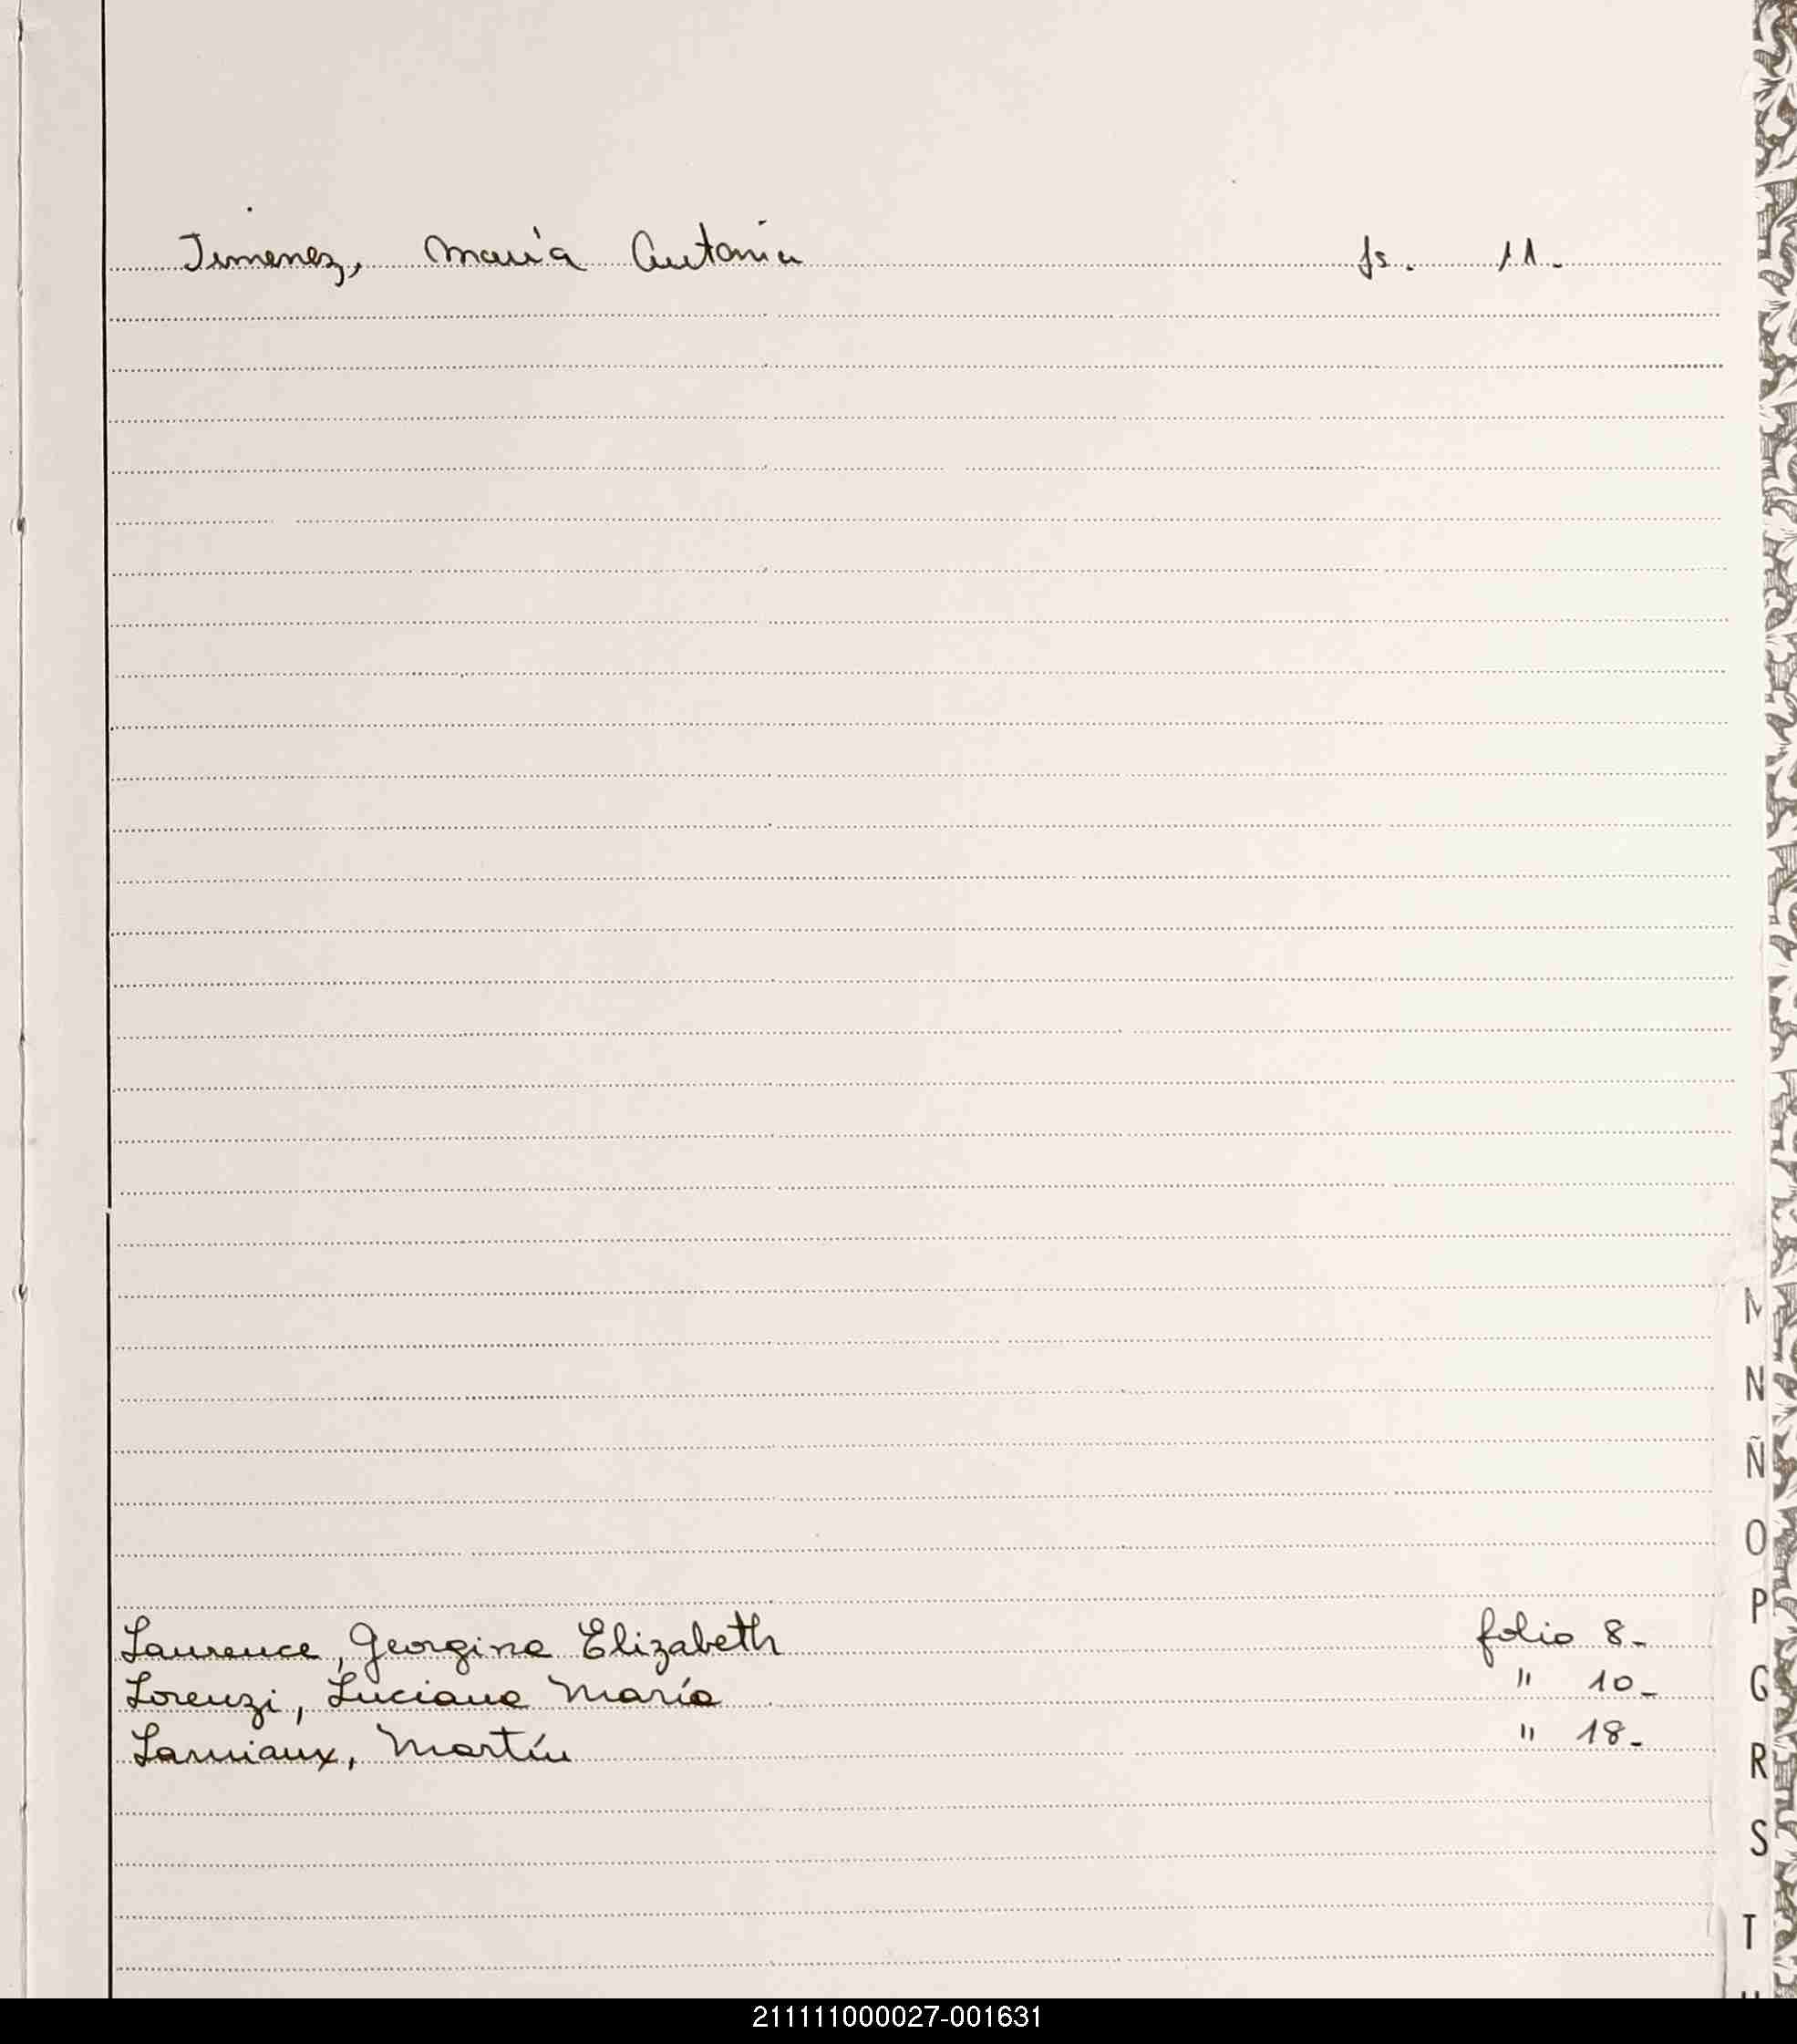 Jimenez, María Antonia fs. 11.
Laurence, Georgina Elizabeth folio 8-
Lorenzi, Luciana María " 10-
Martín " 18-
M
N
Ñ
O
P
Q
R
S
T
211111000027-001631